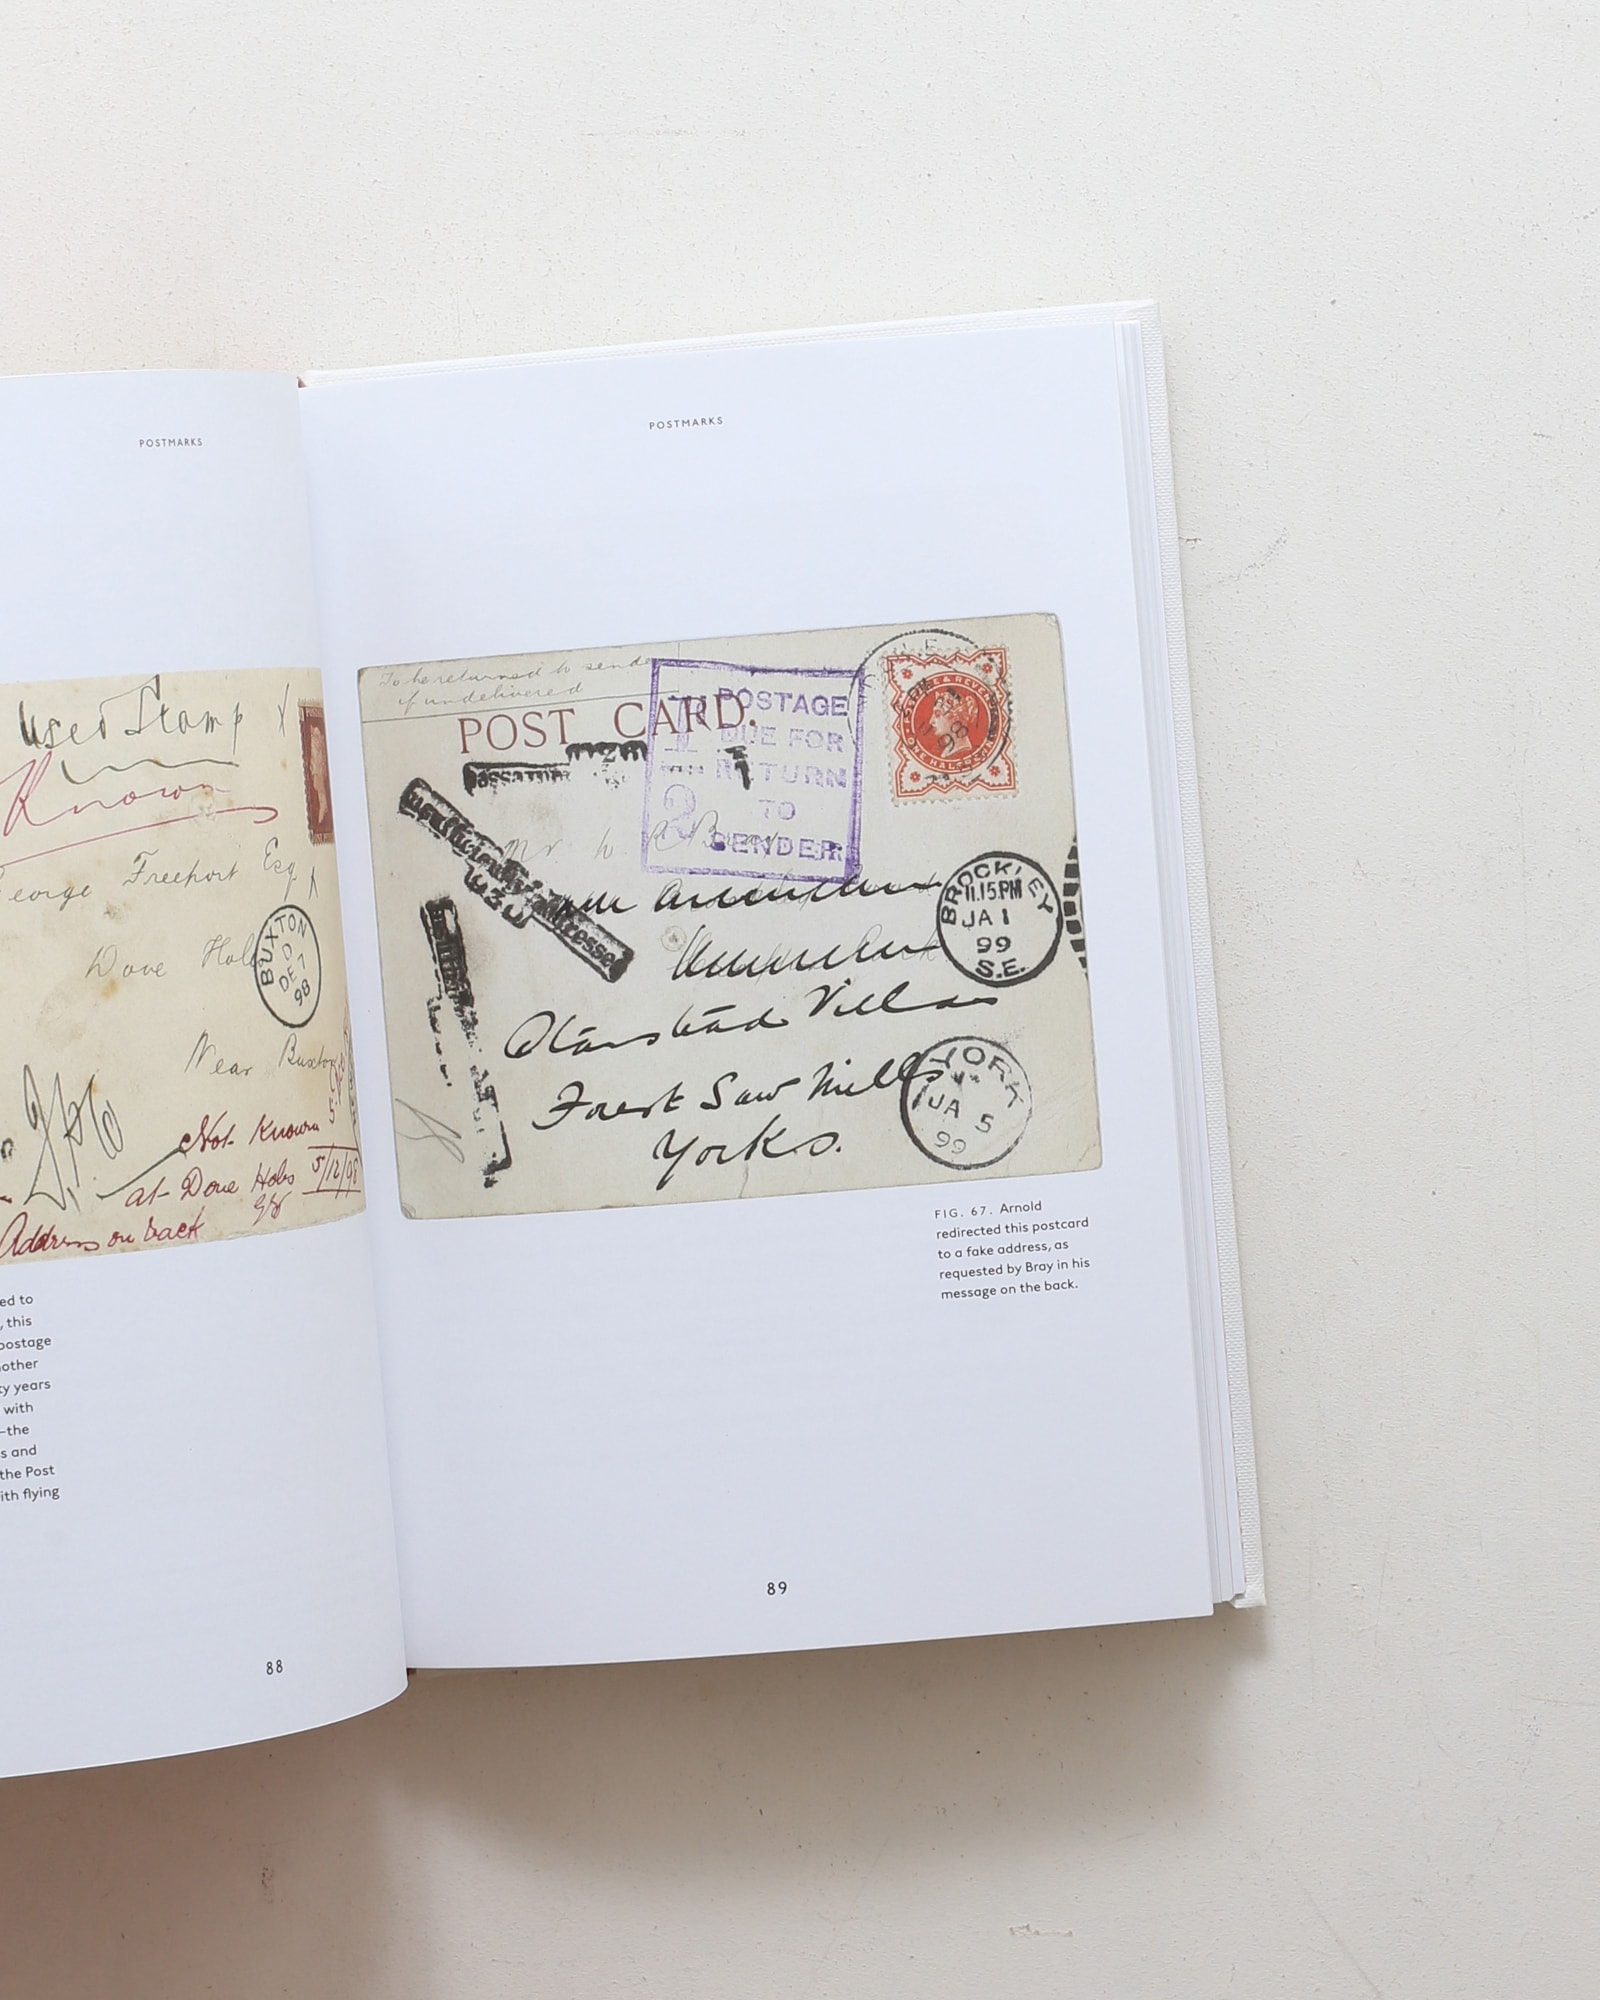 POSTMARKS
Used Stamp X
Known
George Freeport Esq
Dove Holes
BUXTON
D
DE 7
98
Near Buxton
Not Known
at Dove Holes
5/12/98
Address on back
ed to
, this
postage
nother
ty years
with
–the
s and
the Post
ith flying
88
POSTMARKS
To be returned to sender
if undelivered
POST CARD.
POSTAGE
DUE FOR
RETURN
TO
SENDER
Mr W R Bray
BROCKLEY
11.15.PM
JA 1
99
S.E.
Villas
Forest Saw Mills
Yorks.
YORK
JA 5
99
FIG. 67. Arnold
redirected this postcard
to a fake address, as
requested by Bray in his
message on the back.
89